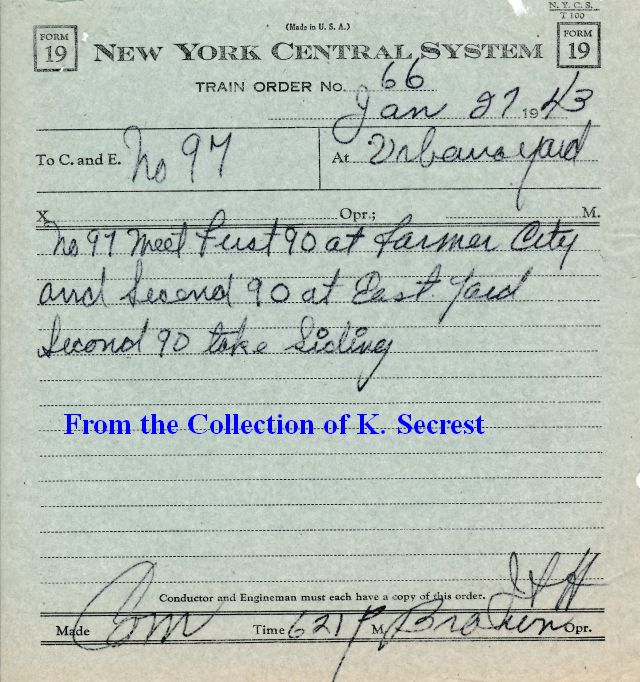 N.Y.C.S.
T 100
(Made in U. S. A.)
FORM 19 NEW YORK CENTRAL SYSTEM FORM 19
TRAIN ORDER No. 66
Jan 27 1943
To C. and E. No 97 At Urbana yard
X Opr.; M.
No 97 Meet First 90 at Farmer City
and Second 90 at East Yard
Second 90 take Siding
From the Collection of K. Secrest
Conductor and Engineman must each have a copy of this order.
Made Com Time 621 P M. Opr.